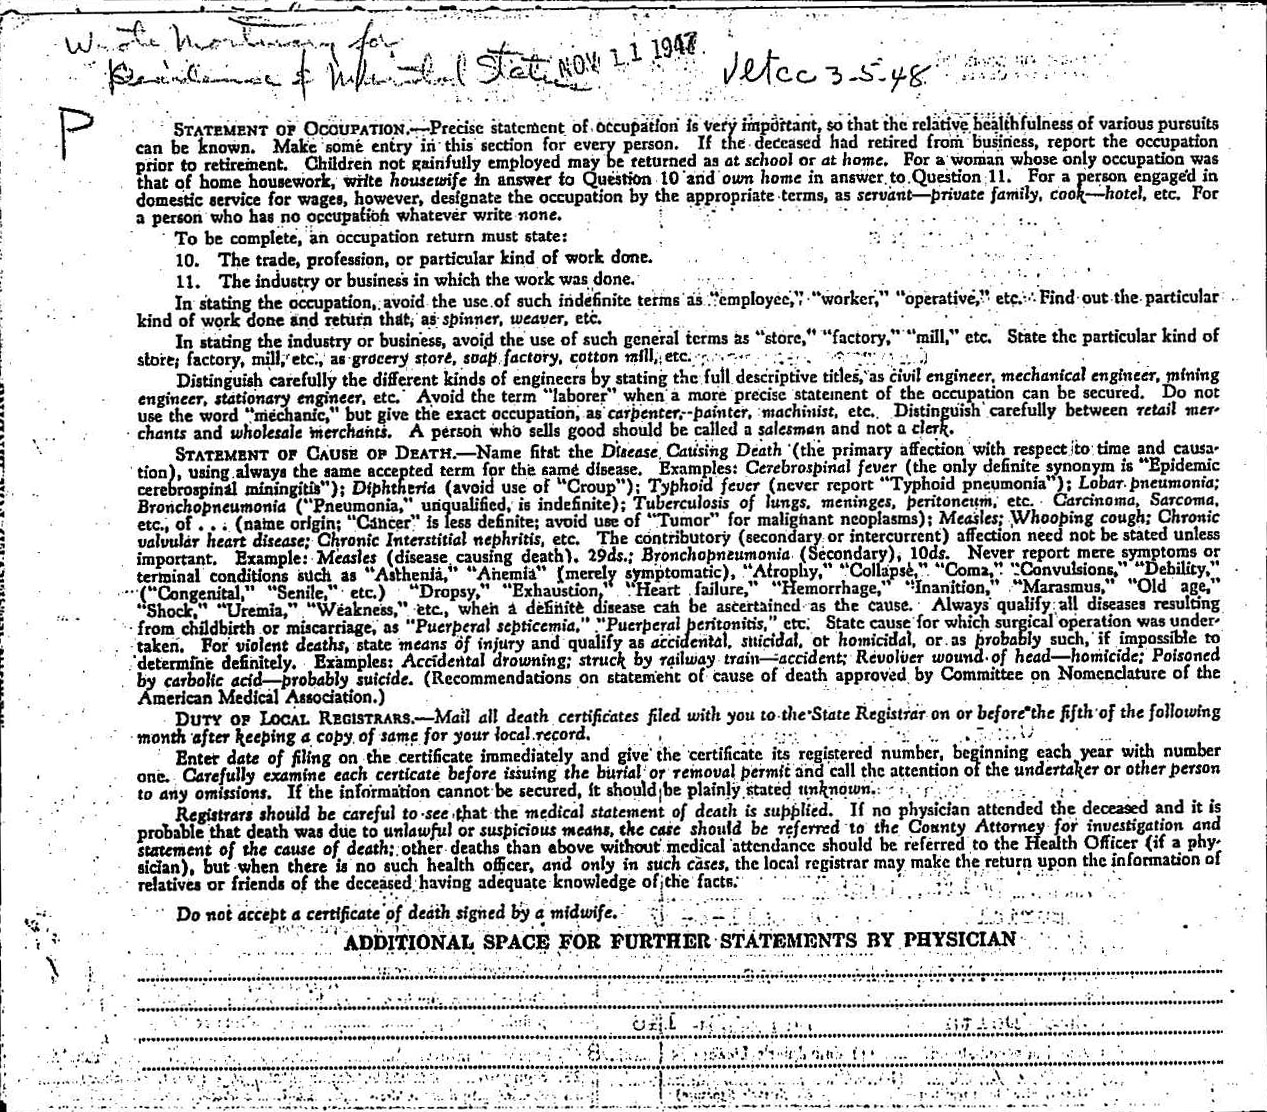 Wrote Mortuary for
Residence & Marital Status NOV 11 1947 vetcc 3-5-48
P
STATEMENT OF OCCUPATION.—Precise statement of occupation is very important, so that the relative healthfulness of various pursuits
can be known. Make some entry in this section for every person. If the deceased had retired from business, report the occupation
prior to retirement. Children not gainfully employed may be returned as at school or at home. For a woman whose only occupation was
that of home housework, write housewife in answer to Question 10 and own home in answer to Question 11. For a person engaged in
domestic service for wages, however, designate the occupation by the appropriate terms, as servant—private family, cook—hotel, etc. For
a person who has no occupation whatever write none.
To be complete, an occupation return must state:
10. The trade, profession, or particular kind of work done.
11. The industry or business in which the work was done.
In stating the occupation, avoid the use of such indefinite terms as "employee," "worker," "operative," etc. Find out the particular
kind of work done and return that, as spinner, weaver, etc.
In stating the industry or business, avoid the use of such general terms as "store," "factory," "mill," etc. State the particular kind of
store, factory, mill, etc., as grocery store, soap factory, cotton mill, etc.
Distinguish carefully the different kinds of engineers by stating the full descriptive titles, as civil engineer, mechanical engineer, mining
engineer, stationary engineer, etc. Avoid the term "laborer" when a more precise statement of the occupation can be secured. Do not
use the word "mechanic," but give the exact occupation, as carpenter, painter, machinist, etc. Distinguish carefully between retail mer-
chants and wholesale merchants. A person who sells good should be called a salesman and not a clerk.
STATEMENT OF CAUSE OF DEATH.—Name first the Disease Causing Death (the primary affection with respect to time and causa-
tion), using always the same accepted term for the same disease. Examples: Cerebrospinal fever (the only definite synonym is "Epidemic
cerebrospinal miningitis"); Diphtheria (avoid use of "Croup"); Typhoid fever (never report "Typhoid pneumonia"); Lobar pneumonia;
Bronchopneumonia ("Pneumonia," unqualified, is indefinite); Tuberculosis of lungs, meninges, peritoneum, etc. Carcinoma, Sarcoma,
etc., of . . . (name origin; "Cancer" is less definite; avoid use of "Tumor" for malignant neoplasms); Measles; Whooping cough; Chronic
valvular heart disease; Chronic Interstitial nephritis, etc. The contributory (secondary or intercurrent) affection need not be stated unless
important. Example: Measles (disease causing death), 29ds.; Bronchopneumonia (Secondary), 10ds. Never report mere symptoms or
terminal conditions such as "Asthenia," "Anemia" (merely symptomatic), "Atrophy," "Collapse," "Coma," "Convulsions," "Debility,"
("Congenital," "Senile," etc.) "Dropsy," "Exhaustion," "Heart failure," "Hemorrhage," "Inanition," "Marasmus," "Old age,"
"Shock," "Uremia," "Weakness," etc., when a definite disease can be ascertained as the cause. Always qualify all diseases resulting
from childbirth or miscarriage, as "Puerperal septicemia," "Puerperal peritonitis," etc. State cause for which surgical operation was under-
taken. For violent deaths, state means of injury and qualify as accidental, suicidal, or homicidal, or as probably such, if impossible to
determine definitely. Examples: Accidental drowning; struck by railway train—accident; Revolver wound of head—homicide; Poisoned
by carbolic acid—probably suicide. (Recommendations on statement of cause of death approved by Committee on Nomenclature of the
American Medical Association.)
DUTY OF LOCAL REGISTRARS.—Mail all death certificates filed with you to the State Registrar on or before the fifth of the following
month after keeping a copy of same for your local record.
Enter date of filing on the certificate immediately and give the certificate its registered number, beginning each year with number
one. Carefully examine each certicate before issuing the burial or removal permit and call the attention of the undertaker or other person
to any omissions. If the information cannot be secured, it should be plainly stated unknown.
Registrars should be careful to see that the medical statement of death is supplied. If no physician attended the deceased and it is
probable that death was due to unlawful or suspicious means, the case should be referred to the County Attorney for investigation and
statement of the cause of death; other deaths than above without medical attendance should be referred to the Health Officer (if a phy-
sician), but when there is no such health officer, and only in such cases, the local registrar may make the return upon the information of
relatives or friends of the deceased having adequate knowledge of the facts.
Do not accept a certificate of death signed by a midwife.
ADDITIONAL SPACE FOR FURTHER STATEMENTS BY PHYSICIAN